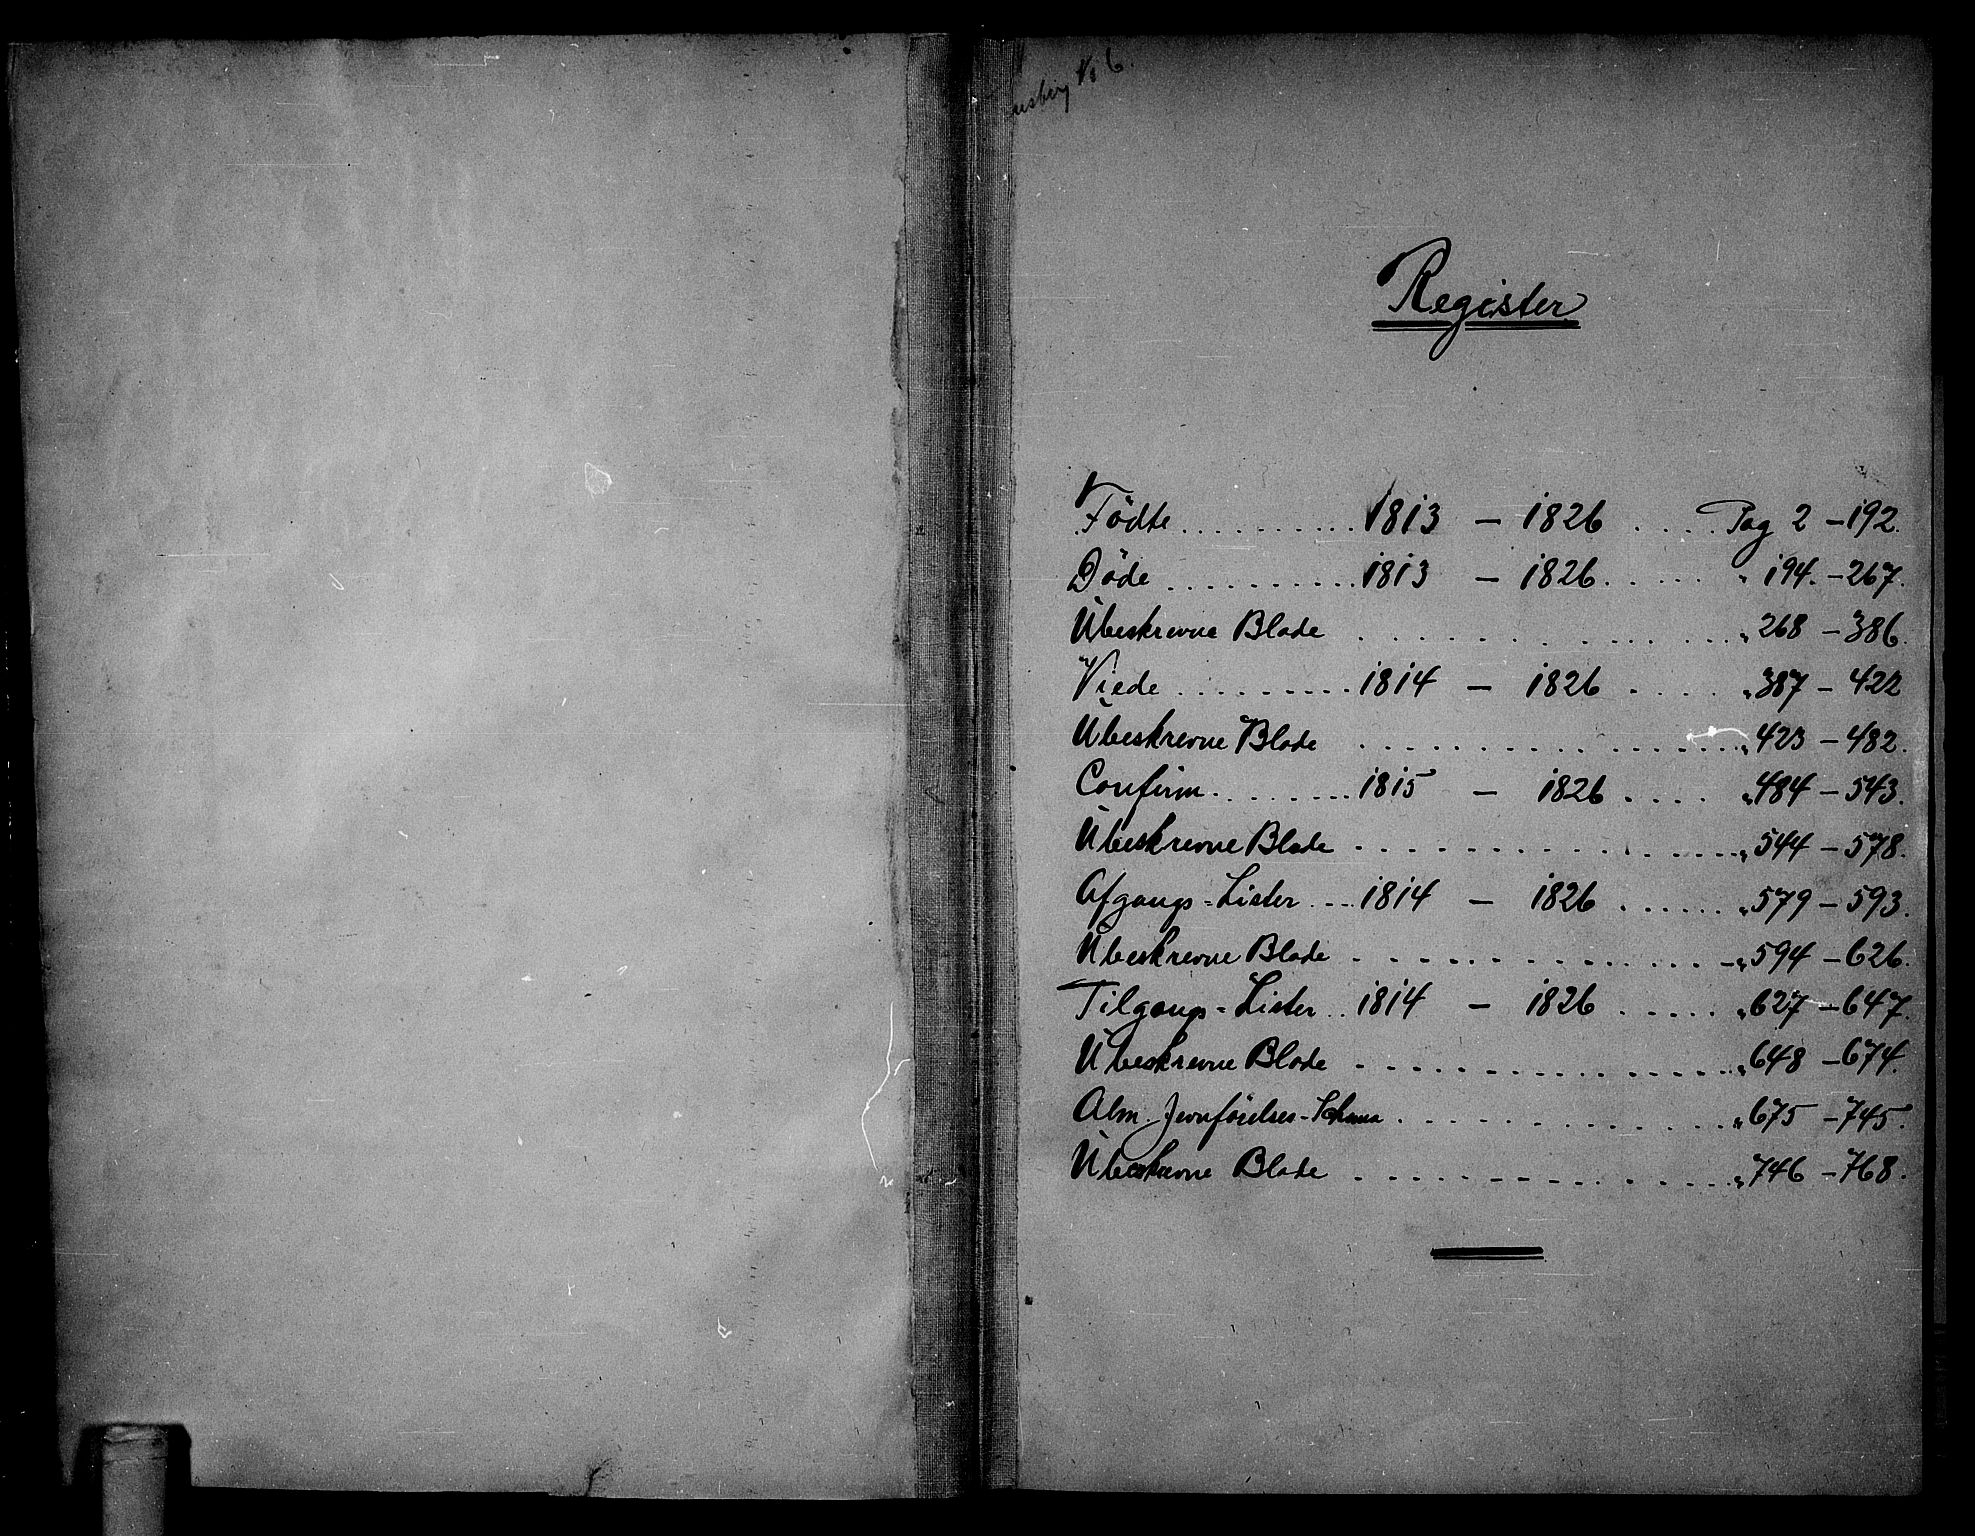 No 6.
Register
Födte .......... 1813 — 1826 .... Pag 2 – 192.
Döde .......... 1813 — 1826 ..... " 194. – 267.
Ubeskrevne Blade .............. " 268 – 386.
Viede .......... 1814 — 1826 .... " 387 – 422
Ubeskrevne Blade .............. " 423 – 482.
Confirm. ....... 1815 — 1826 .... " 484 – 543.
Ubeskrevne Blade .............. " 544 – 578.
Afgangs=Lister ... 1814 — 1826 ...... " 579 – 593.
Ubeskrevne Blade .............. " 594 – 626.
Tilgangs=Lister .. 1814 — 1826 ..... " 627 – 647.
Ubeskrevne Blade .............. " 648 – 674.
Alm. Jevnförelses-Schema .............. " 675 – 745.
Ubeskrevne Blade .............. " 746 – 768.